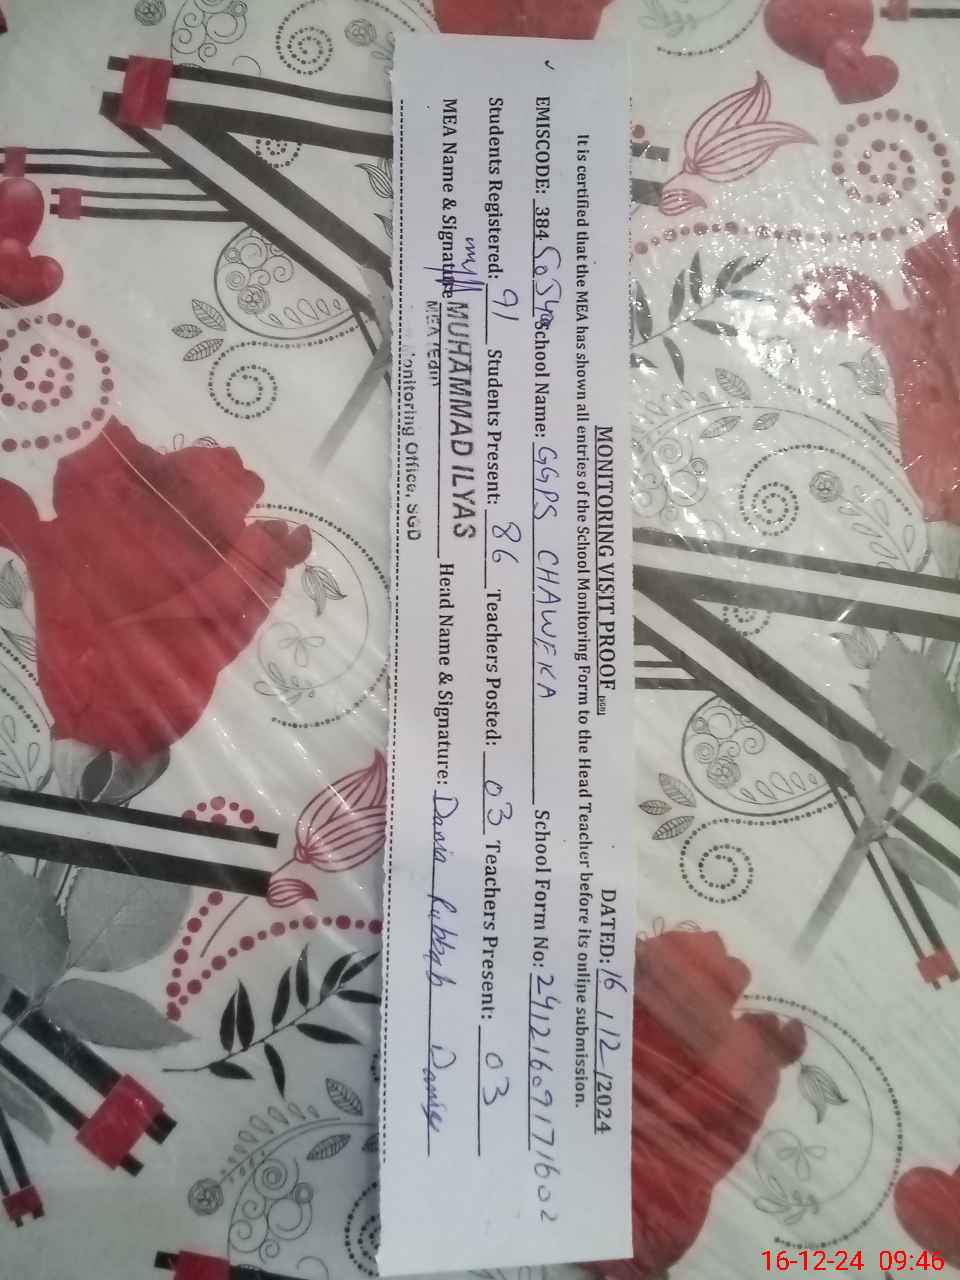 MONITORING VISIT PROOF [SGD] DATED: 16 / 12 / 2024
It is certified that the MEA has shown all entries of the School Monitoring Form to the Head Teacher before its online submission.
EMISCODE: 384 School Name: GGPS CHAWEKA School Form No: 24121609171602
Students Registered: 91 Students Present: 86 Teachers Posted: 03 Teachers Present: 03
MEA Name & Signature MUHAMMAD ILYAS Head Name & Signature: Dania Rubbab Dania
MEA
Monitoring Office, SGD
16-12-24 09:46